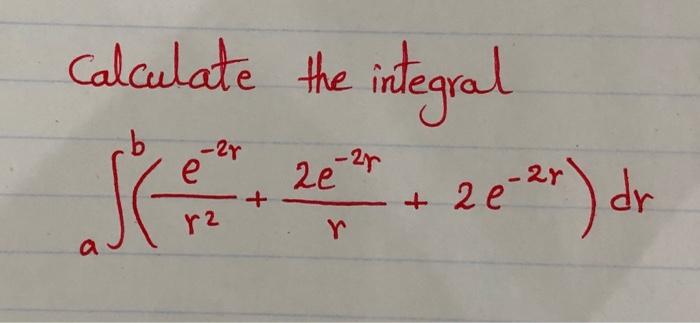 Calculate the integral
∫_a^b (e^{-2r}/r^2 + 2e^{-2r}/r + 2e^{-2r}) dr